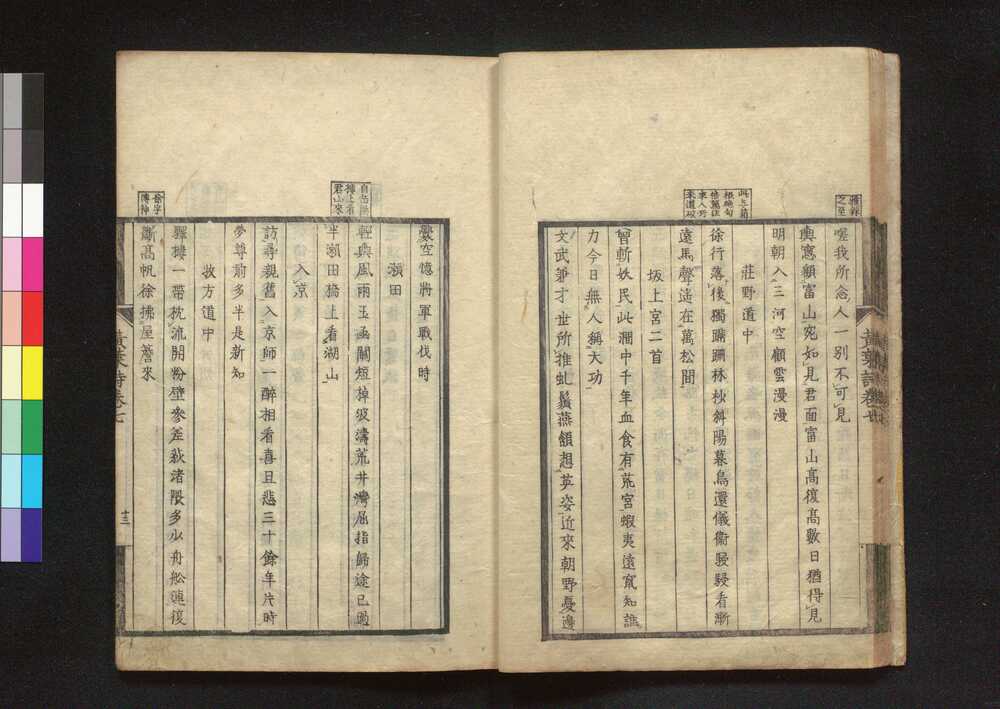 嗟我所念人一別不可見
輿窻願富山宛如見君面富山高復高數日猶得見
明朝入三河空顧雲漫漫
莊野道中
徐行落後獨踽踽林杪斜陽暮鳥還儀衞駸駸看漸
遠馬聲遙在萬松間
坂上宮二首
曾斬妖民此澗中千年血食有荒宮蝦夷遠竄知誰
力今日無人稱大功
文武兼才世所推虬鬚燕頷想英姿近來朝野憂邊
釁空憶將軍戰伐時
瀬田
輕輿風雨玉函關短棹波濤荒井灣屈指歸途已過
半瀬田橋上看湖山
入京
訪尋親舊入京師一醉相看喜且悲三十餘年片時
夢尊前多半是新知
枚方道中
驛樓一帶枕流開粉壁參差荻渚隈多少舟船連復
斷高帆徐拂屋簷來
黃葉詩卷七
十三